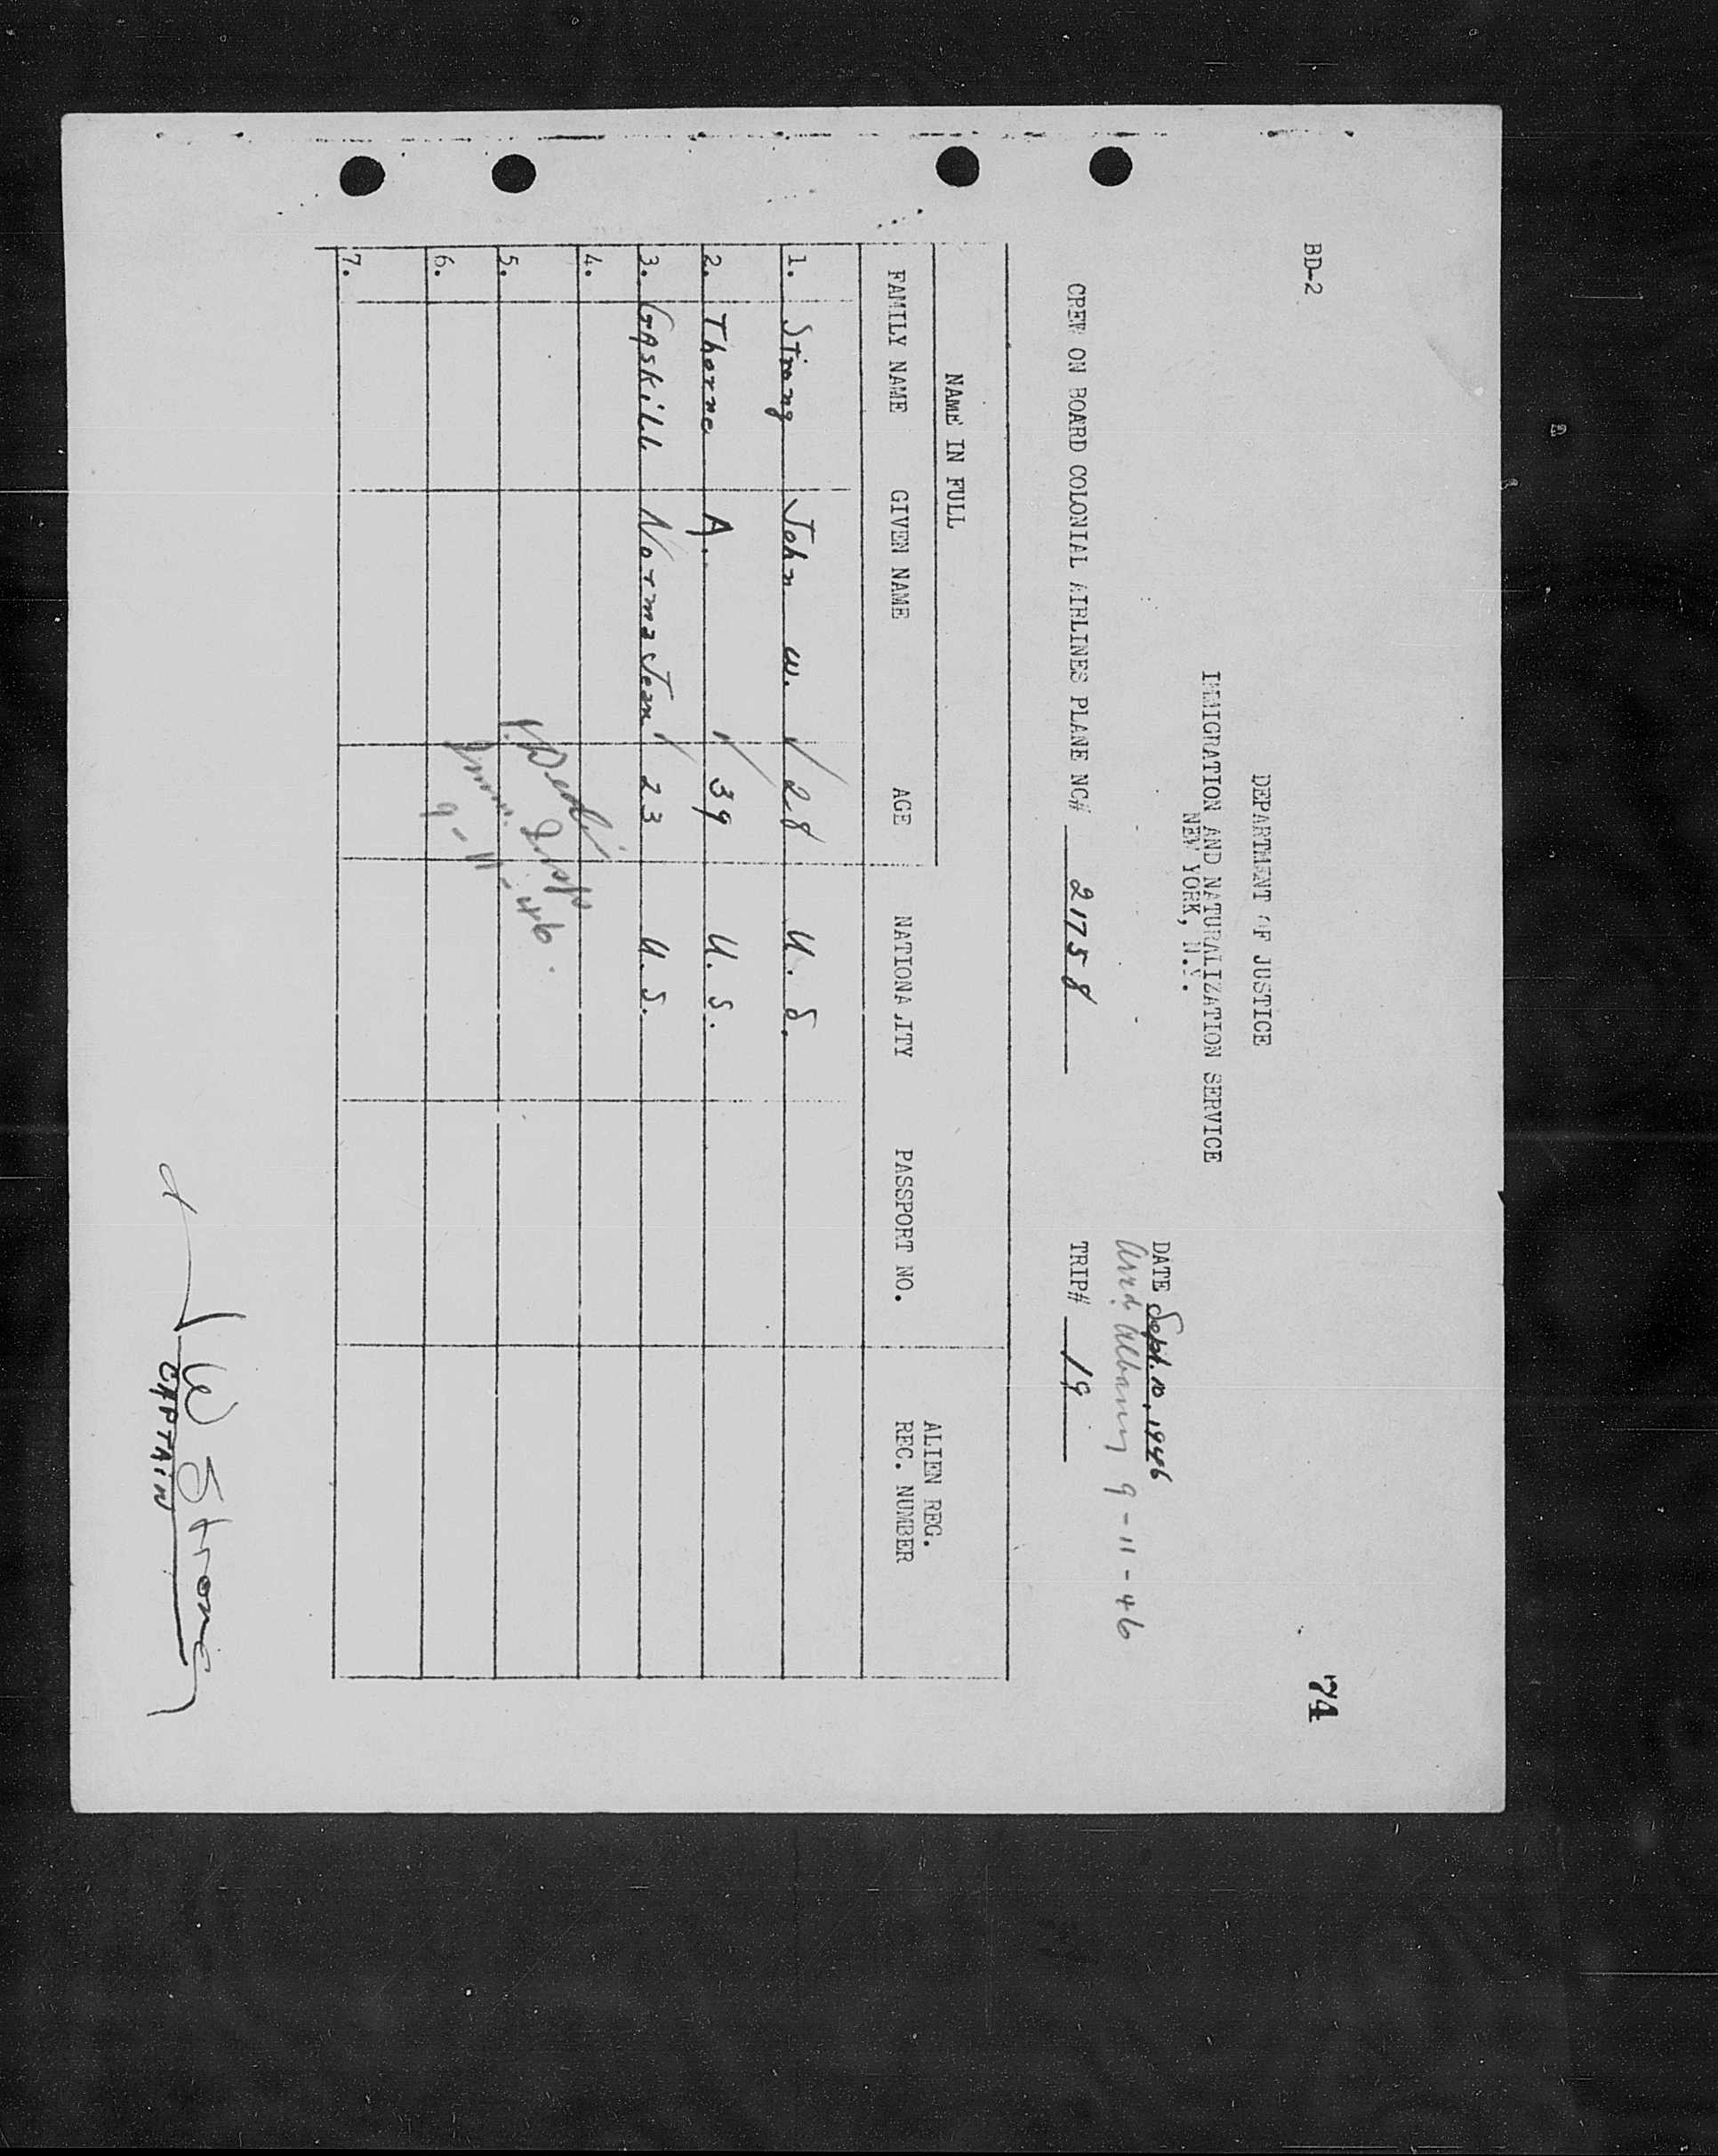 BD-2
74
DEPARTMENT OF JUSTICE
IMMIGRATION AND NATURALIZATION SERVICE
NEW YORK, N.Y.
DATE Sept. 10, 1946
Arrd. Albany 9-11-46
CREW ON BOARD COLONIAL AIRLINES PLANE NC# 21758 TRIP# 19
NAME IN FULL
FAMILY NAME GIVEN NAME AGE NATIONALITY PASSPORT NO. ALIEN REG. REC. NUMBER
1. Strong John W. 28 U.S.
2. Thorne A. 39 U.S.
3. Gaskill Norma Jean 23 U.S.
4.
5.
6.
7.
9-11-46
J W Strong
CAPTAIN